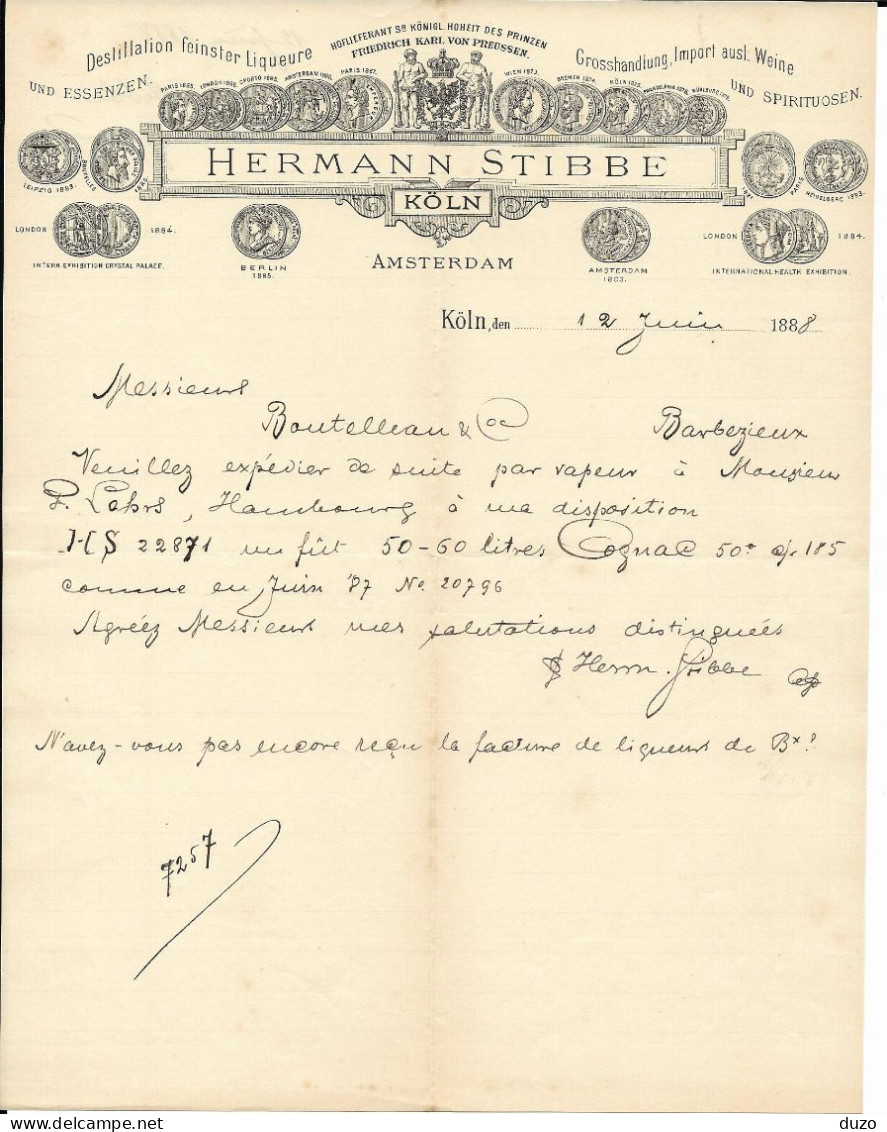 HOFLIEFERANT Sr KÖNIGL. HOHEIT DES PRINZEN
FRIEDRICH KARL VON PREUSSEN.
Destillation feinster Liqueure
UND ESSENZEN.
Grosshandlung, Import ausl. Weine
UND SPIRITUOSEN.
PARIS 1865. LONDON 1866. OPORTO 1866. AMSTERDAM 1866. PARIS 1867.
WIEN 1873. BREMEN 1874. KÖLN 1875. PHILADELPHIA 1876
HERMANN STIBBE
KÖLN
AMSTERDAM
LEIPZIG 1883. BRUXELLES
PARIS HEIDELBERG 1883.
LONDON 1884.
INTERN. EXHIBITION CRYSTAL PALACE.
BERLIN
1885.
AMSTERDAM
1883.
LONDON 1884.
INTERNATIONAL HEALTH EXHIBITION.
Köln, den 12 Juin 1888
Messieurs
Boutelleau & Co Barbezieux
Veuillez expédier de suite par vapeur à Monsieur
F. Lehrs, Hambourg à ma disposition
HS 22871 un fût 50-60 litres Cognac 50° 185
comme en Juin '87 No. 20796
Agréez Messieurs mes salutations distinguées
Herm. Stibbe
N'avez-vous pas encore reçu la facture de liqueurs de Bx?
7257
duzo